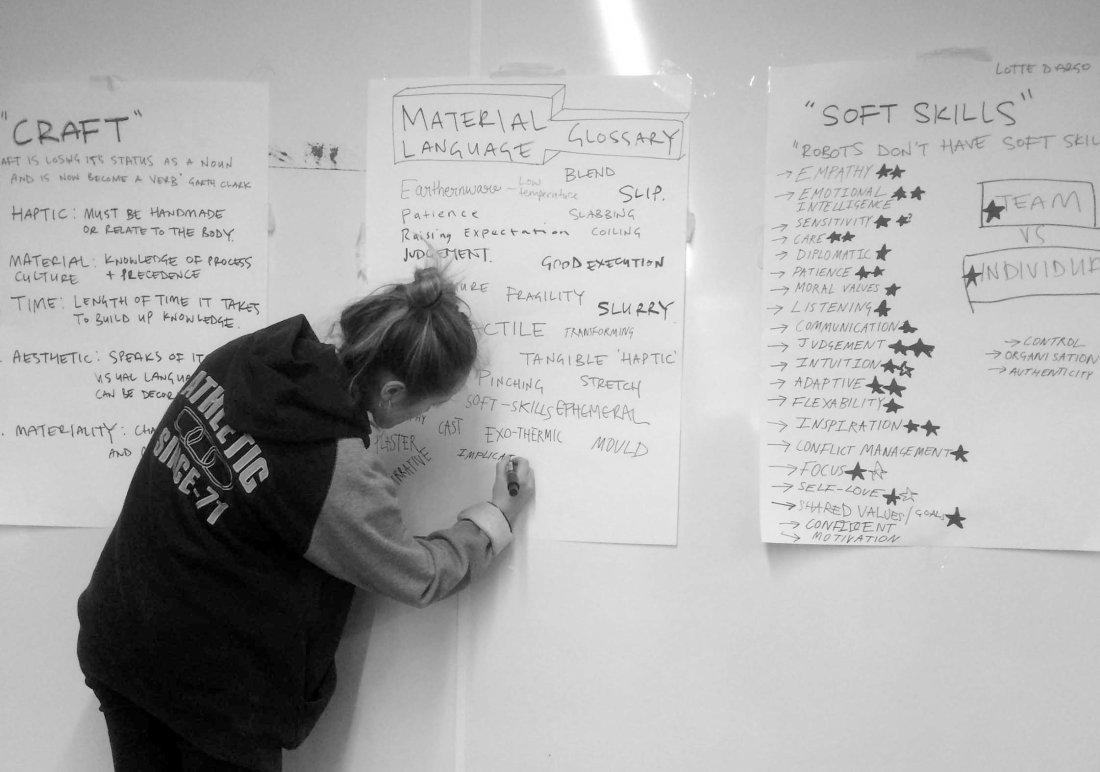 "CRAFT"
AFT IS LOSING ITS STATUS AS A NOUN
AND IS NOW BECOME A VERB' GARTH CLARK
HAPTIC: MUST BE HANDMADE
OR RELATE TO THE BODY.
MATERIAL: KNOWLEDGE OF PROCESS
CULTURE + PRECEDENCE
TIME: LENGTH OF TIME IT TAKES
TO BUILD UP KNOWLEDGE.
AESTHETIC: SPEAKS OF IT
VISUAL LANGUA
CAN BE DECOR
MATERIALITY: CHA
AND
MATERIAL
LANGUAGE
GLOSSARY
BLEND
Earthernware - Low
temperature
SLIP.
Patience
SLABBING
Raising Expectation
COILING
JUDGEMENT.
GOOD EXECUTION
URE
FRAGILITY
SLURRY.
ACTILE
TRANSFORMING
TANGIBLE 'HAPTIC'
PINCHING
STRETCH
SOFT-SKILLS
EPHEMERAL
CAST
EXO-THERMIC
MOULD
PLASTER
IMPLICAT
ATHLETIC
SINCE-71
LOTTE DARGO
"SOFT SKILLS"
"ROBOTS DON'T HAVE SOFT SKIL
→ EMPATHY ★★
→ EMOTIONAL ★★
INTELLIGENCE
→ SENSITIVITY ★★
→ CARE ★★
→ DIPLOMATIC ★
→ PATIENCE ★★
→ MORAL VALUES ★
→ LISTENING ★
→ COMMUNICATION ★
→ JUDGEMENT ★★
→ INTUITION ★☆
→ ADAPTIVE ★★
→ FLEXABILITY ★
→ INSPIRATION ★★
→ CONFLICT MANAGEMENT ★
→ FOCUS ★☆
→ SELF-LOVE ★☆
→ SHARED VALUES/GOALS ★
→ CONFIDENT
→ MOTIVATION
★ TEAM
VS
★ INDIVIDUA
→ CONTROL
→ ORGANISATION
→ AUTHENTICITY